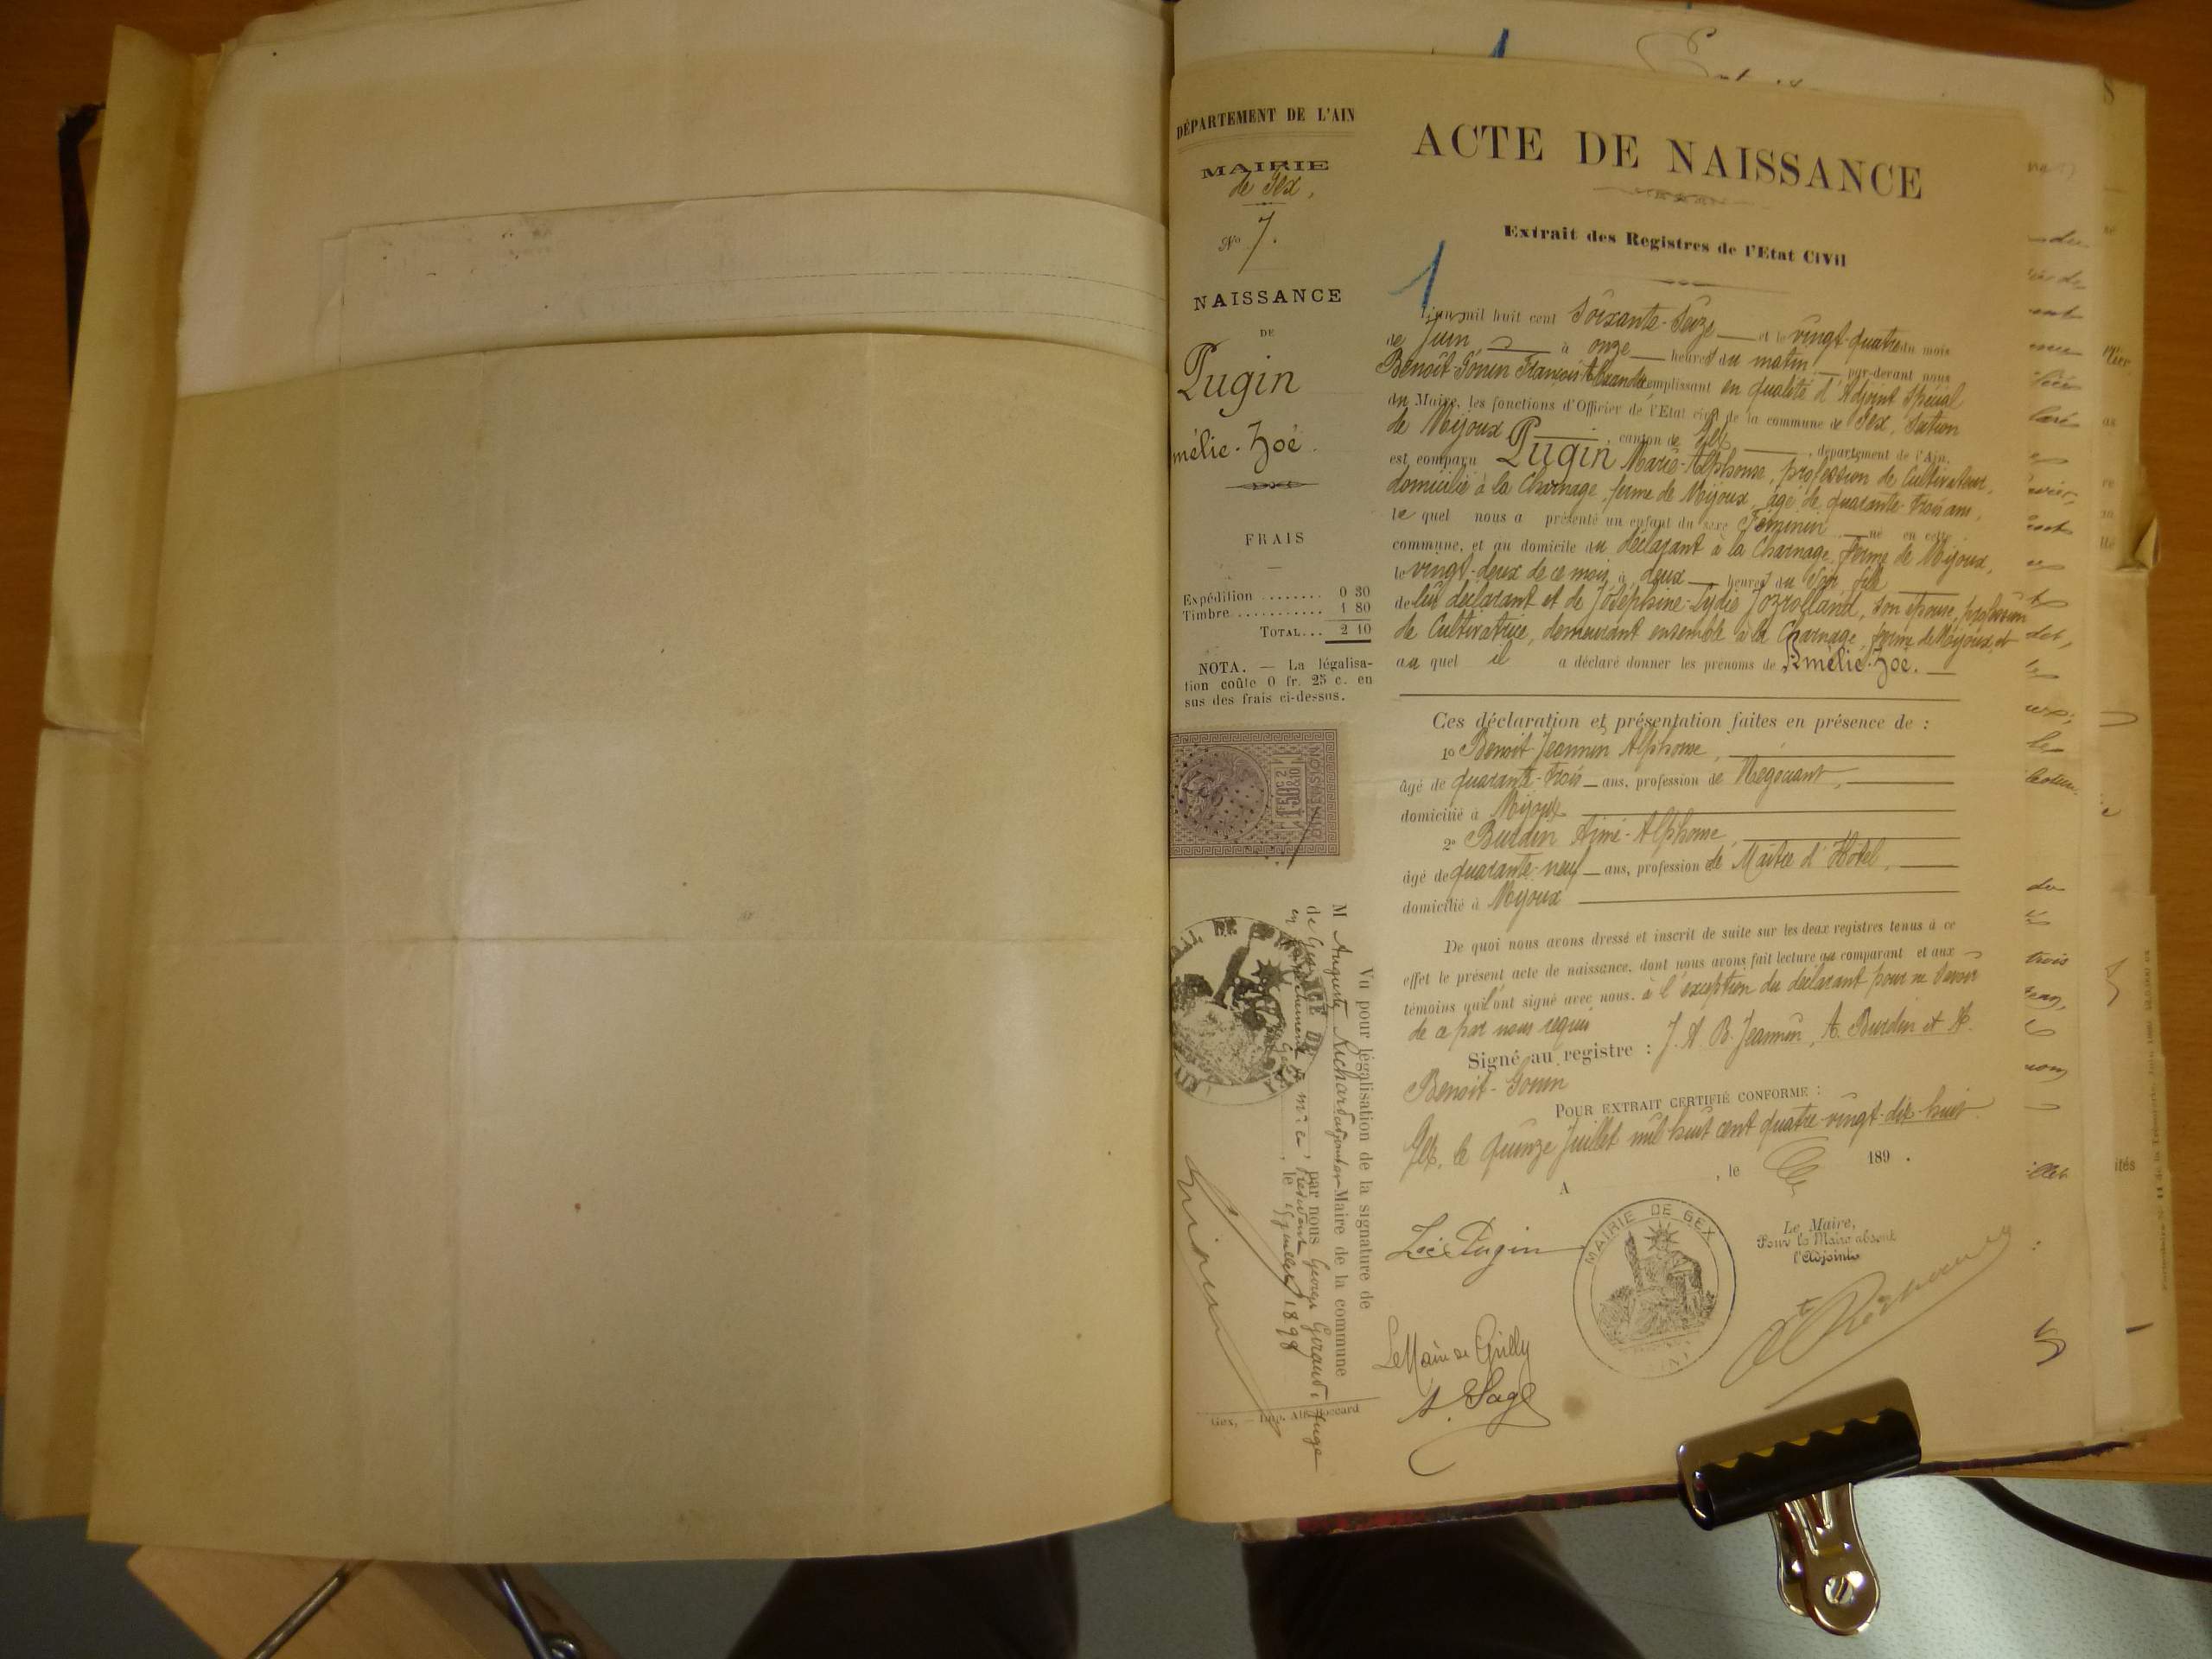 DÉPARTEMENT DE L'AIN
MAIRIE
de Gex,
No 7.
NAISSANCE
DE
Pugin
mélie-Zoé.
FRAIS
Expédition ........ 0 30
Timbre ............ 1 80
TOTAL... 2 10
NOTA. — La légalisa-
tion coûte 0 fr. 25 c. en
sus des frais ci-dessus.
DIMENSION
ACTE DE NAISSANCE
Extrait des Registres de l'Etat Civil
1
L'an mil huit cent Soixante-Seize et le vingt-quatre du mois
de Juin à onze heures du matin par-devant nous
Benoît-Gonin François remplissant en qualité d'Adjoint Spécial
au Maire, les fonctions d'Officier de l'Etat civil de la commune de Gex, Section
de Mijoux, canton de Gex, département de l'Ain,
est comparu Pugin Marie-Alphonse, profession de Cultivateur,
domicilié à la Charnage, ferme de Mijoux, âgé de quarante-trois ans,
le quel nous a présenté un enfant du sexe Féminin né en cette
commune, et au domicile du déclarant à la Charnage, ferme de Mijoux,
le vingt-deux de ce mois à deux heures du Soir fille
de lui déclarant et de Joséphine-Lydie Jozrolland, son épouse, profession
de Cultivatrice, demeurant ensemble à la Charnage, ferme de Mijoux, et
au quel il a déclaré donner les prénoms de Amélie-Zoé.
Ces déclaration et présentation faites en présence de :
1o Benoit-Jeannin Alphonse,
âgé de quarante-trois ans, profession de Négociant,
domicilié à Mijoux
2o Burdin Aimé-Alphonse
âgé de quarante-neuf ans, profession de Maître d'Hôtel,
domicilié à Mijoux
De quoi nous avons dressé et inscrit de suite sur les deux registres tenus à ce
effet le présent acte de naissance, dont nous avons fait lecture au comparant et aux
témoins qui l'ont signé avec nous. à l'exception du déclarant pour ne savoir
de ce par nous requis
Signé au registre : J. A B. Jeannin, A. Burdin et F.
Benoit-Gonin
POUR EXTRAIT CERTIFIÉ CONFORME :
Gex, le quinze Juillet mil huit cent quatre-vingt-dix-huit
A , le 189 .
Zoé Pugin
MAIRIE DE GEX
Le Maire,
Pour le Maire absent
l'Adjoint
Le Maire de Grilly
Sage
Vu pour légalisation de la signature de
M Auguste Richard adjoint au Maire de la commune
de Gex par nous Georges Giraud, Juge
, le 15 Juillet 1898
Gex, — Imp. Alf. Boccard